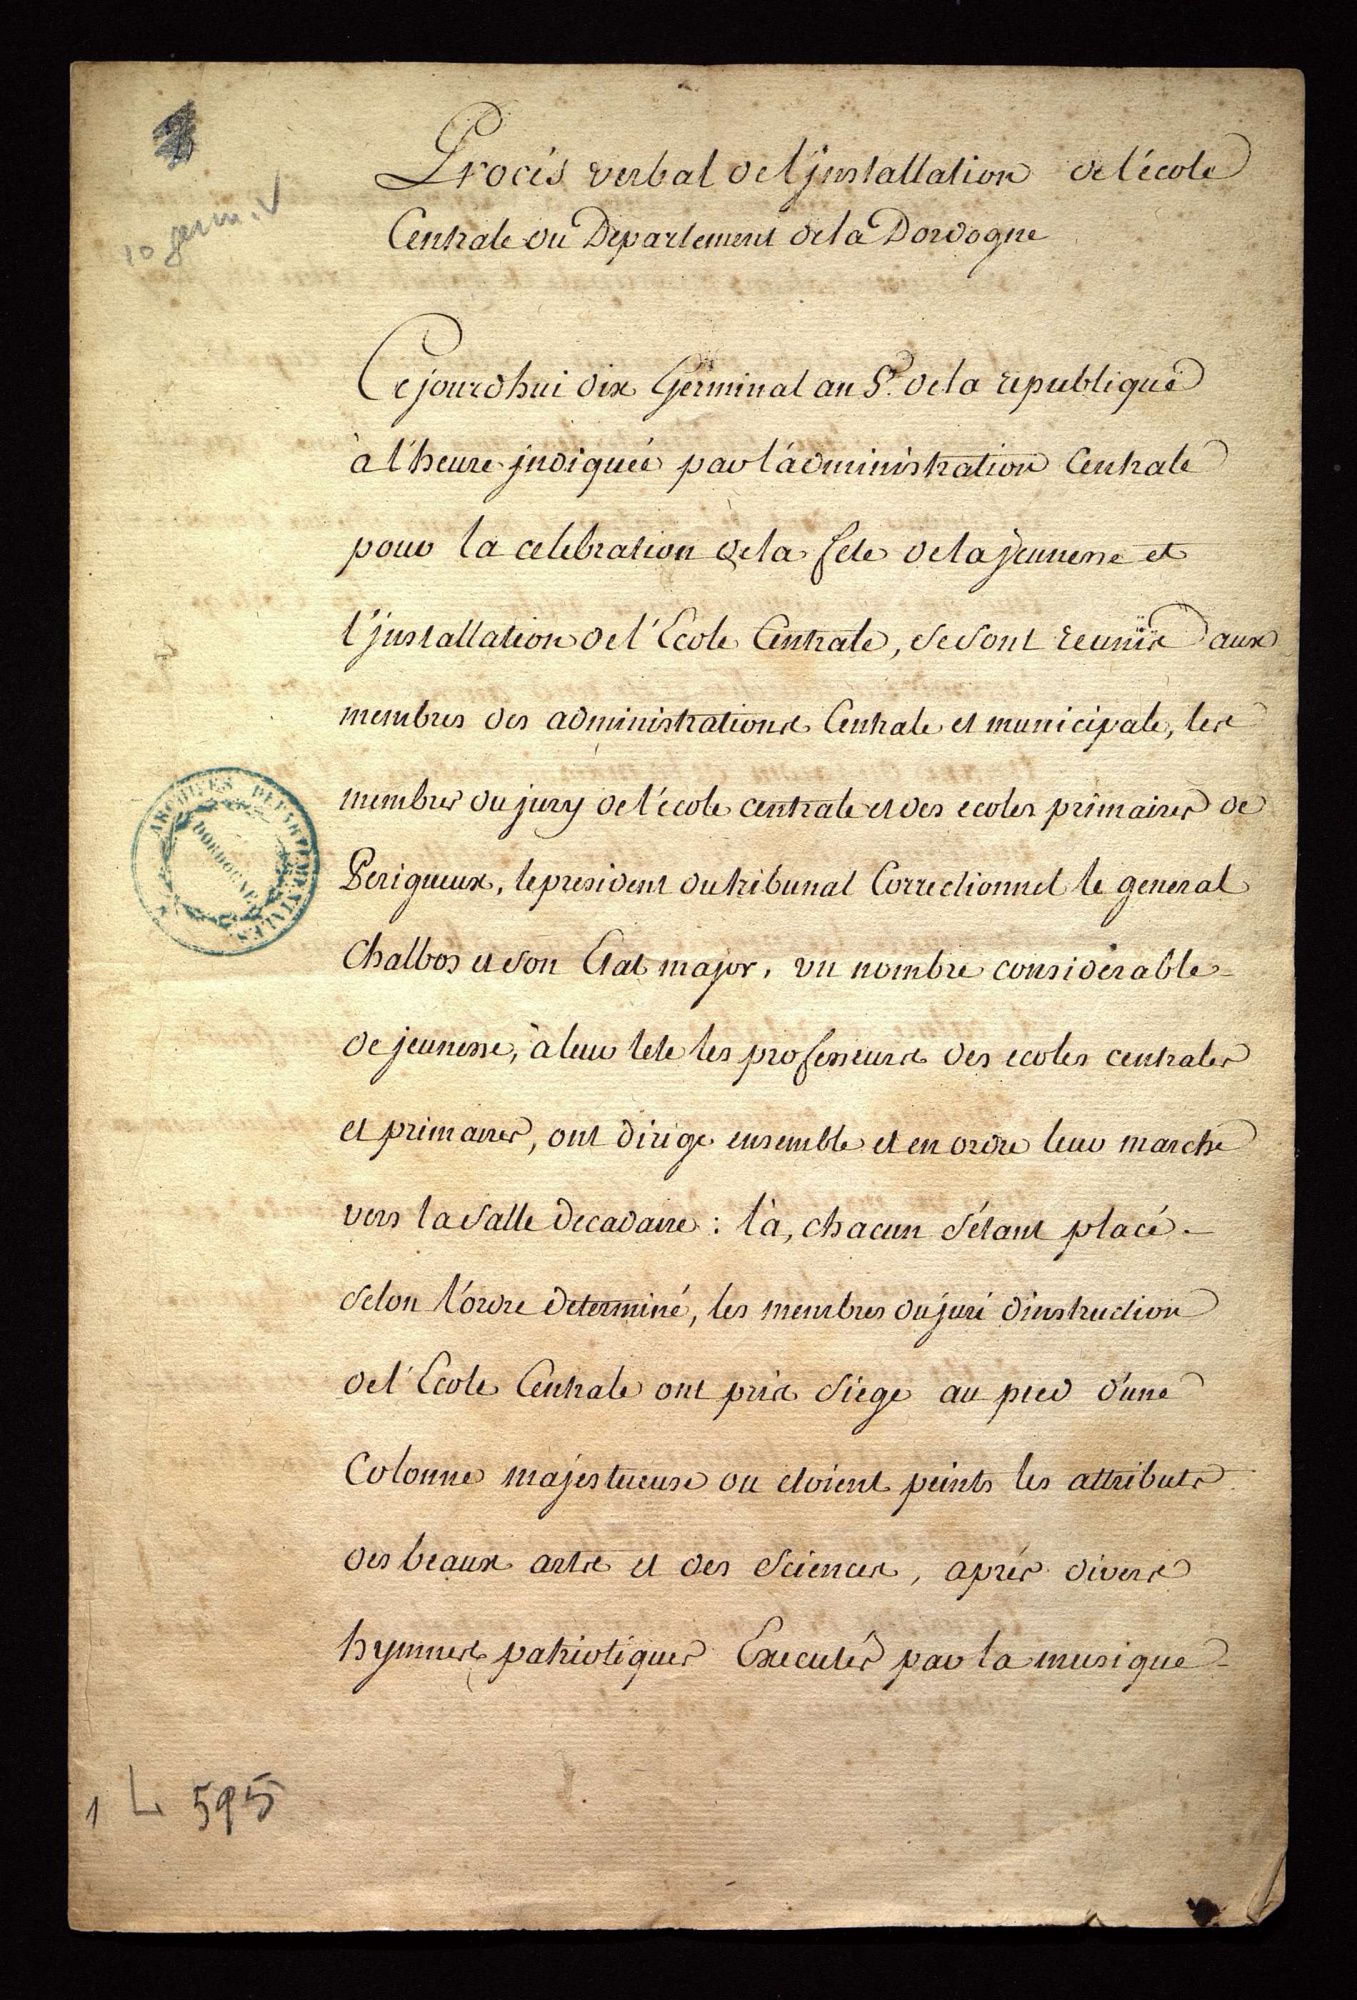 10 germ. V
Procés verbal de l'jnstallation de l'école
Centrale du Departement de la Dordogne
Cejourdhui dix Germinal an 5e. de la republique
à l'heure jndiqueé par l'administration Centrale
pour la celebration de la fete de la jeunesse et
l'jnstallation de l'Ecole Centrale, se sont reunis aux
membres des administrations Centrale et municipale, les
membres du jury de l'école centrale et des ecoles primaires de
Perigueux, le president du tribunal Correctionnel le general
Chalbos et son Etat major, un nombre considerable
de jeunesse, à leur tete les professeurs des ecoles centrales
et primaires, ont dirigé ensemble et en ordre leur marche
vers la salle Decadaire : là, chacun s'étant placé
selon l'ordre determiné, les membres du juri d'instruction
de l'Ecole Centrale ont pris siege au pied d'une
Colonne majestueuse ou etoient peints les attributs
des beaux arts et des sciences, aprés divers
hymnes patriotiques Executés par la musique
ARCHIVES DÉPARTEMENTALES
DORDOGNE
1 L 595